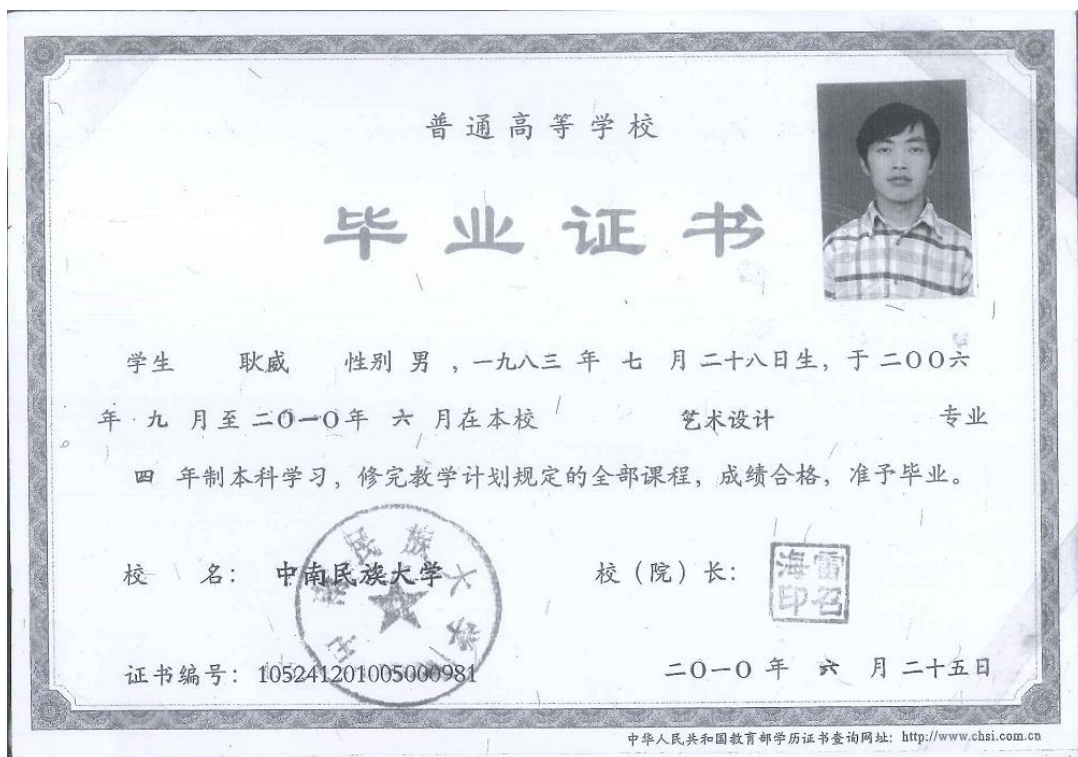 普通高等学校
毕业证书
学生 耿威 性别 男 ，一九八三 年 七 月 二十八日生，于 二〇〇六
年 九 月至 二〇一〇年 六 月在本校 艺术设计 专业
四 年制本科学习，修完教学计划规定的全部课程，成绩合格，准予毕业。
校 名： 中南民族大学 校（院）长：
中南民族大学
雷召海印
证书编号：105241201005000981 二〇一〇 年 六 月 二十五日
中华人民共和国教育部学历证书查询网址：http://www.chsi.com.cn